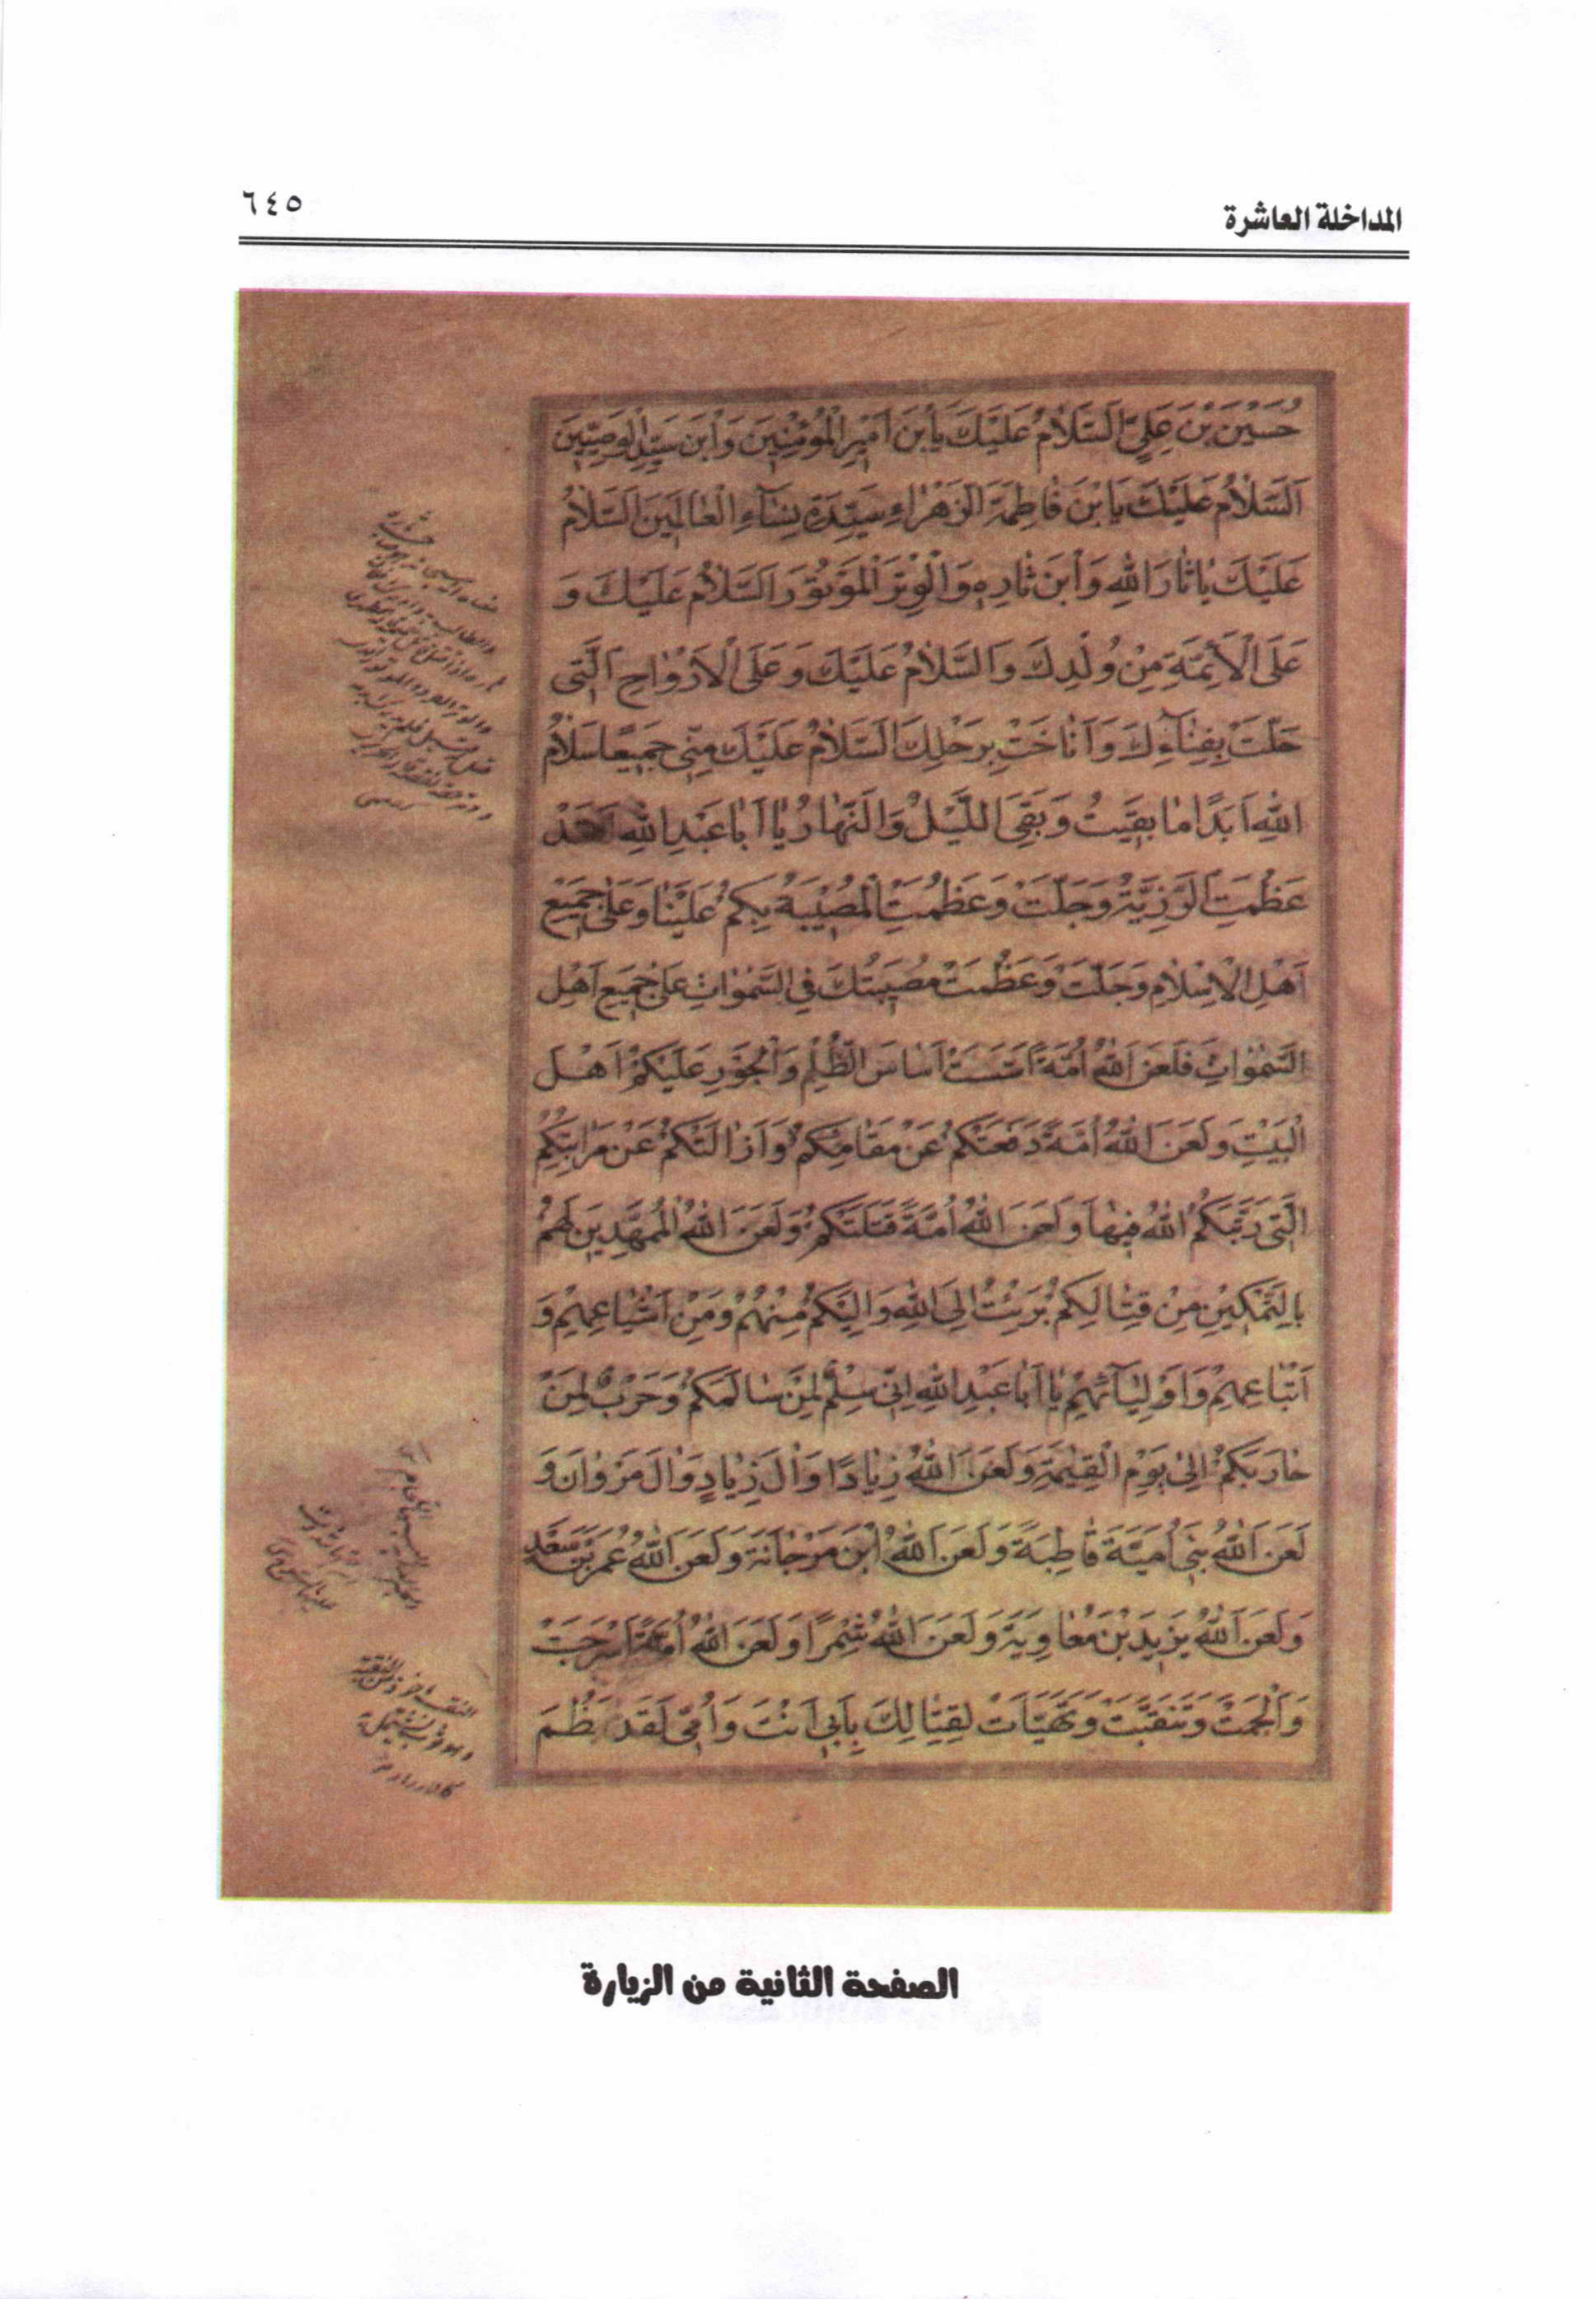 المداخلة العاشرة
٦٤٥
حُسَيْنَ بْنَ عَلِيٍّ اَلسَّلَامُ عَلَيْكَ يَا بْنَ اَمِيرِ الْمُؤْمِنِينَ وَابْنَ سَيِّدِ الْوَصِيِّينَ
اَلسَّلَامُ عَلَيْكَ يَا بْنَ فَاطِمَةَ الزَّهْرَاءِ سَيِّدَةِ نِسَاءِ الْعَالَمِينَ اَلسَّلَامُ
عَلَيْكَ يَا ثَارَ اللهِ وَابْنَ ثَارِهِ وَالْوِتْرَ الْمَوْتُورَ اَلسَّلَامُ عَلَيْكَ وَ
عَلَى الْاَئِمَّةِ مِنْ وُلْدِكَ وَالسَّلَامُ عَلَيْكَ وَعَلَى الْاَرْوَاحِ الَّتِي
حَلَّتْ بِفِنَائِكَ وَاَنَاخَتْ بِرَحْلِكَ اَلسَّلَامُ عَلَيْكَ مِنِّي جَمِيعًا سَلَامُ
اللهِ اَبَدًا مَا بَقِيتُ وَبَقِيَ اللَّيْلُ وَالنَّهَارُ يَا اَبَا عَبْدِ اللهِ لَقَدْ
عَظُمَتِ الرَّزِيَّةُ وَجَلَّتْ وَعَظُمَتِ الْمُصِيبَةُ بِكُمْ عَلَيْنَا وَعَلَى جَمِيعِ
اَهْلِ الْاِسْلَامِ وَجَلَّتْ وَعَظُمَتْ مُصِيبَتُكَ فِي السَّمٰوَاتِ عَلَى جَمِيعِ اَهْلِ
السَّمٰوَاتِ فَلَعَنَ اللهُ اُمَّةً اَسَّسَتْ اَسَاسَ الظُّلْمِ وَالْجَوْرِ عَلَيْكُمْ اَهْلَ
الْبَيْتِ وَلَعَنَ اللهُ اُمَّةً دَفَعَتْكُمْ عَنْ مَقَامِكُمْ وَاَزَالَتْكُمْ عَنْ مَرَاتِبِكُمُ
الَّتِي رَتَّبَكُمُ اللهُ فِيهَا وَلَعَنَ اللهُ اُمَّةً قَتَلَتْكُمْ وَلَعَنَ اللهُ الْمُمَهِّدِينَ لَهُمْ
بِالتَّمْكِينِ مِنْ قِتَالِكُمْ بَرِئْتُ اِلَى اللهِ وَاِلَيْكُمْ مِنْهُمْ وَمِنْ اَشْيَاعِهِمْ وَ
اَتْبَاعِهِمْ وَاَوْلِيَائِهِمْ يَا اَبَا عَبْدِ اللهِ اِنِّي سِلْمٌ لِمَنْ سَالَمَكُمْ وَحَرْبٌ لِمَنْ
حَارَبَكُمْ اِلَى يَوْمِ الْقِيٰمَةِ وَلَعَنَ اللهُ زِيَادًا وَآلَ زِيَادٍ وَآلَ مَرْوَانَ وَ
لَعَنَ اللهُ بَنِي اُمَيَّةَ قَاطِبَةً وَلَعَنَ اللهُ ابْنَ مَرْجَانَةَ وَلَعَنَ اللهُ عُمَرَ بْنَ سَعْدٍ
وَلَعَنَ اللهُ يَزِيدَ بْنَ مُعَاوِيَةَ وَلَعَنَ اللهُ شِمْرًا وَلَعَنَ اللهُ اُمَّةً اَسْرَجَتْ
وَاَلْجَمَتْ وَتَنَقَّبَتْ وَتَهَيَّاَتْ لِقِتَالِكَ بِاَبِي اَنْتَ وَاُمِّي لَقَدْ عَظُمَ
الصفحة الثانية من الزيارة